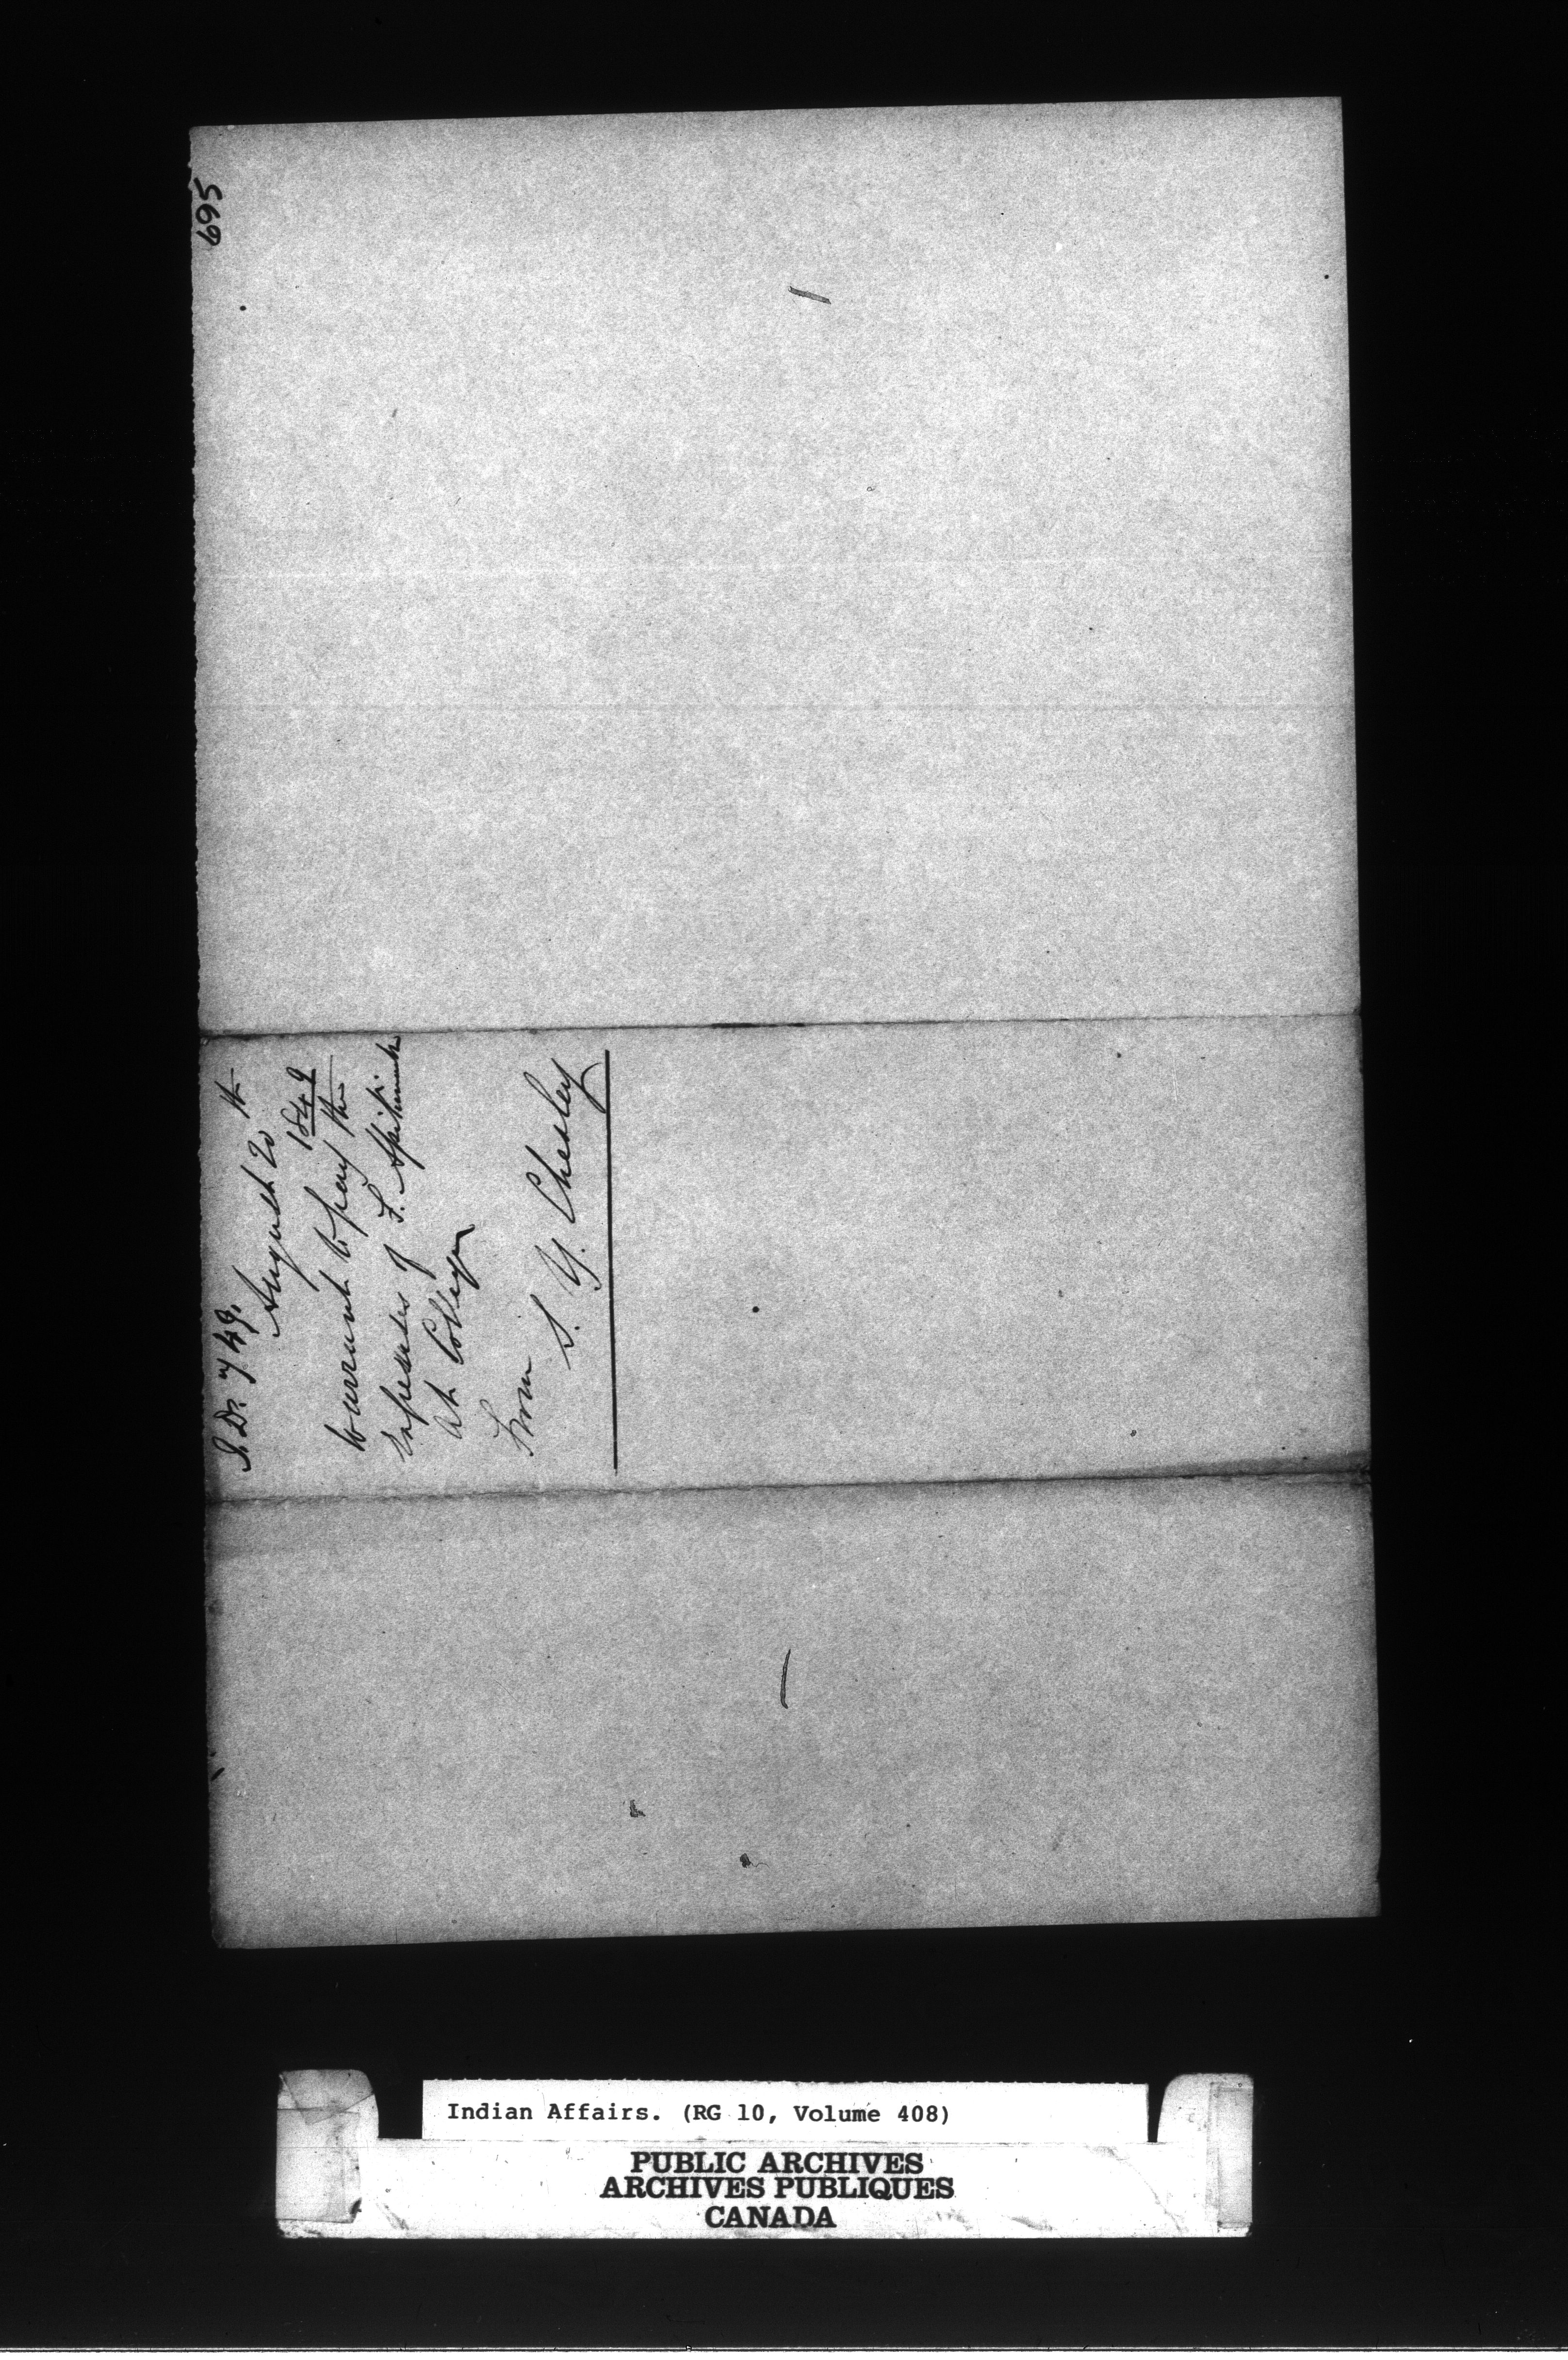 695
I.D. 749.
August 20th
1849
Warrant to pay the
Expenses of F.
at College
From
S. Y. Chesley
Indian Affairs. (RG 10, Volume 408)
PUBLIC ARCHIVES
ARCHIVES PUBLIQUES
CANADA